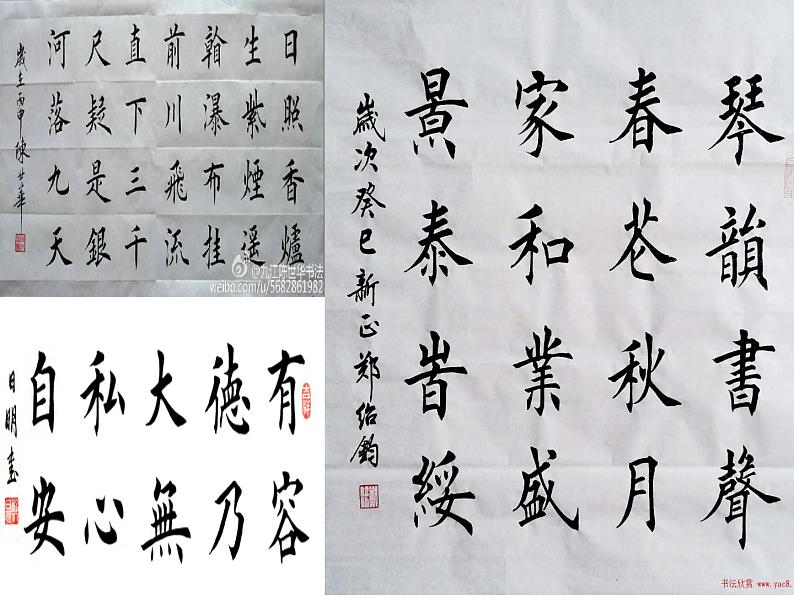 日照香爐
生紫煙遥
看瀑布挂
前川飛流
直下三千
尺疑是銀
河落九天
歲在丙申陳世華
@九江陈世华书法
weibo.com/u/5682861982
有容
德乃
大無
私心
自安
日明書
琴韻書聲
春花秋月
家和業盛
景泰旹綏
歲次癸巳新正郑绍鈞
书法欣赏 www.yac8.